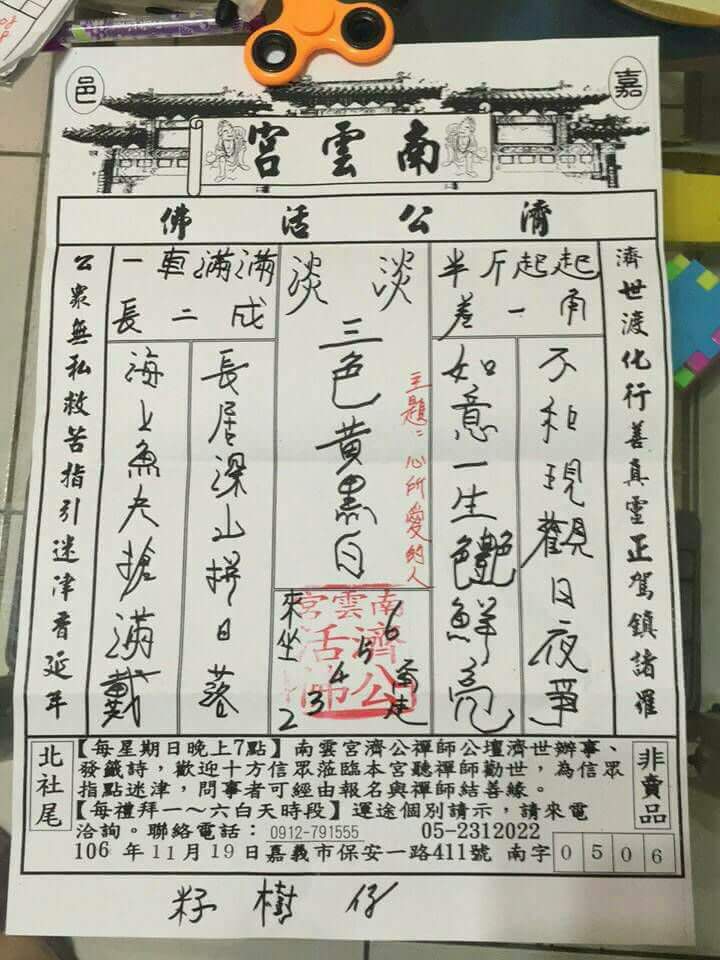 嘉邑
南雲宮
濟公活佛
濟世渡化行善真靈正駕鎮諸羅
起起斤半
角一差
不和現觀日夜爭
如意一生艷鮮亮
主題:心所愛的人
淡淡
三色黃黑白
南雲宮
濟公
活佛
16
5
4
3
2
來坐
滿滿車一
成二長
長居深山拼日落
海上魚夫搶滿載
公眾無私救苦指引迷津香延年
非賣品
北社尾
【每星期日晚上7點】南雲宮濟公禪師公壇濟世辦事、
發籤詩,歡迎十方信眾蒞臨本宮聽禪師勸世,為信眾
指點迷津,問事者可經由報名與禪師結善緣。
【每禮拜一~六白天時段】運途個別請示,請來電
洽詢。聯絡電話:0912-791555 05-2312022
106 年11月19日嘉義市保安一路411號 南字 0506
籽樹仔